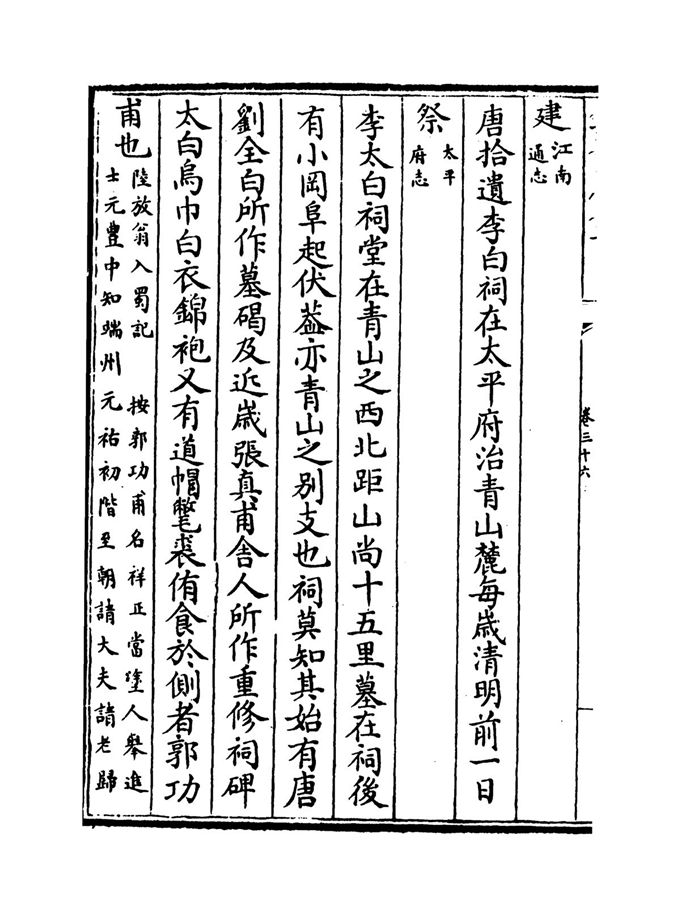 建江南通志
唐拾遺李白祠在太平府治青山麓每歲清明前一日
祭太平府志
李太白祠堂在青山之西北距山尚十五里墓在祠後
有小岡阜起伏葢亦青山之别支也祠莫知其始有唐
劉全白所作墓碣及近歲張真甫舍人所作重修祠碑
太白烏巾白衣錦袍又有道帽氅裘侑食於側者郭功
甫也陸放翁入蜀記 按郭功甫名祥正當塗人舉進
士元豐中知端州元祐初階至朝請大夫請老歸
卷三十六